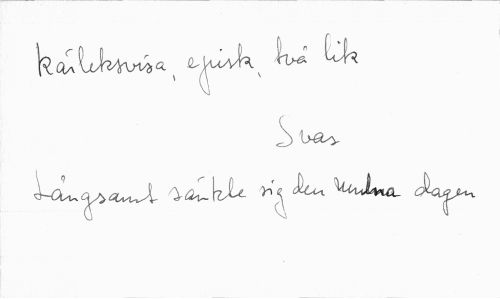 Kärleksvisa, episk, två lik
Svas
Långsamt sänkte sig den dagen